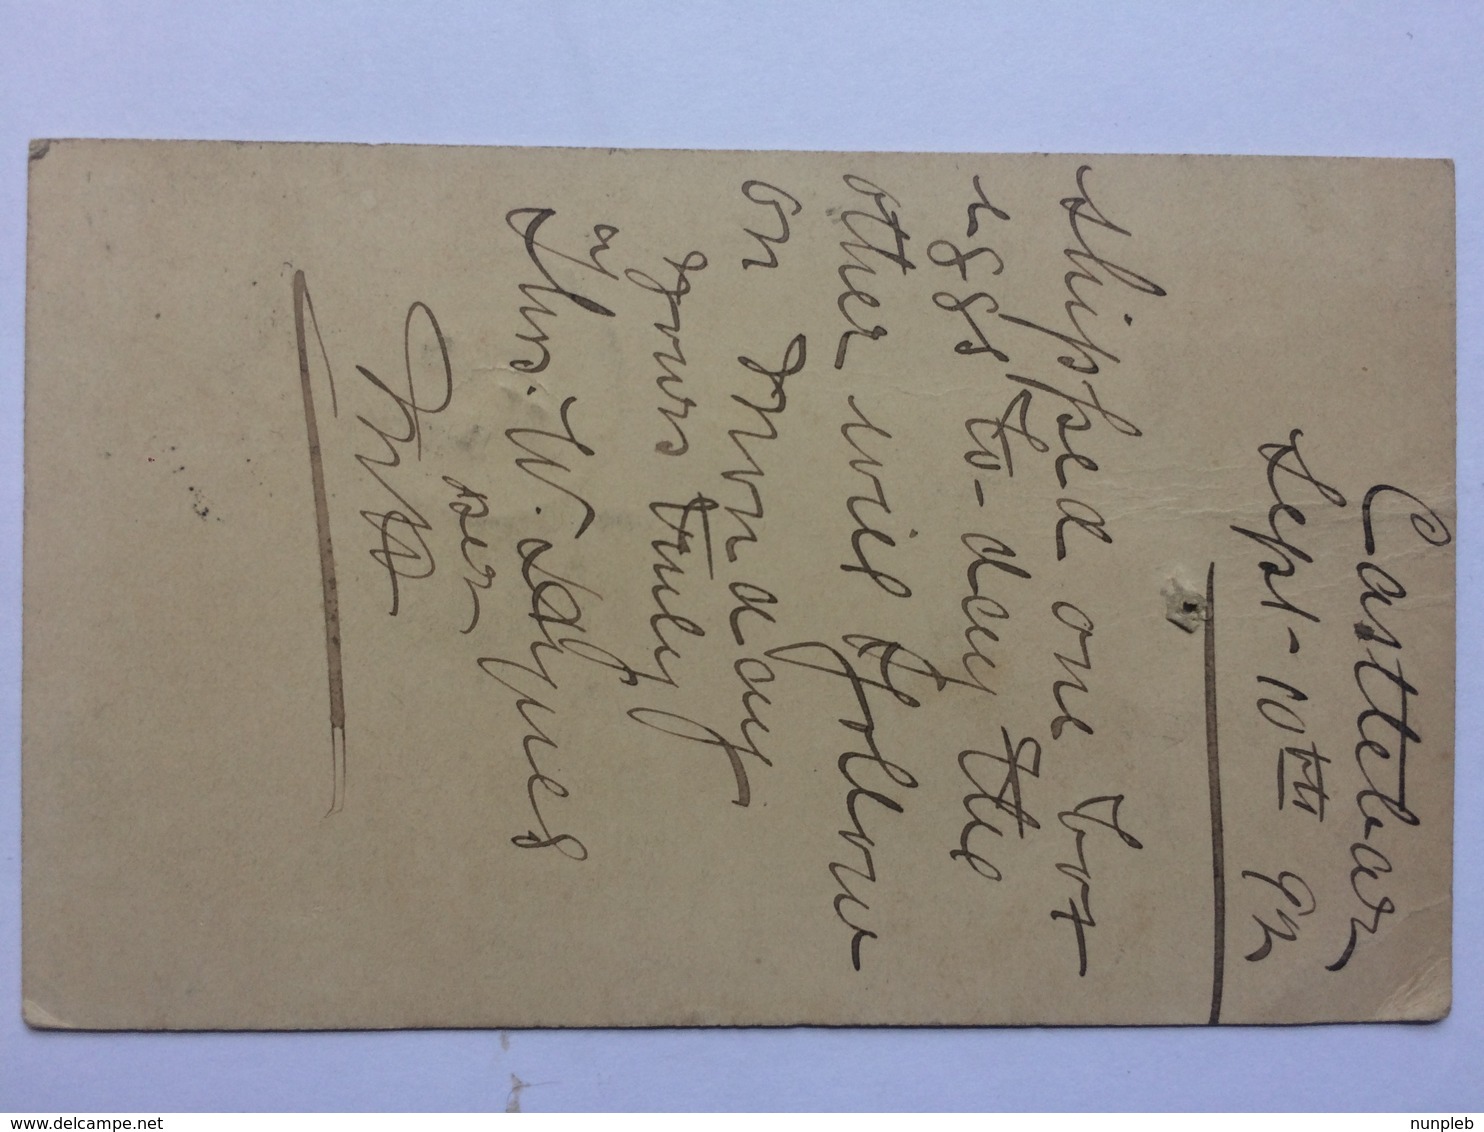 Castlebar
Sept-10th 92
shipped one box
eggs to-day the
other will follow
on Monday
yours truly
Thos. W.
per
www.delcampe.net
nunpleb